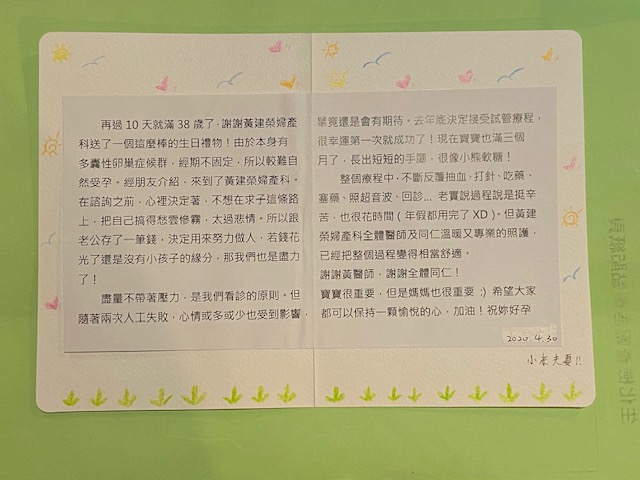 再過 10 天就滿 38 歲了，謝謝黃建榮婦產
科送了一個這麼棒的生日禮物！由於本身有
多囊性卵巢症候群，經期不固定，所以較難自
然受孕。經朋友介紹，來到了黃建榮婦產科。
在諮詢之前，心裡決定著，不想在求子這條路
上，把自己搞得愁雲慘霧，太過悲情。所以跟
老公存了一筆錢，決定用來努力做人，若錢花
光了還是沒有小孩子的緣分，那我們也是盡力
了！
盡量不帶著壓力，是我們看診的原則。但
隨著兩次人工失敗，心情或多或少也受到影響，
畢竟還是會有期待。去年底決定接受試管療程，
很幸運第一次就成功了！現在寶寶也滿三個
月了，長出短短的手腳，很像小熊軟糖！
整個療程中，不斷反覆抽血、打針、吃藥、
塞藥、照超音波、回診... 老實說過程是挺辛
苦，也很花時間 ( 年假都用完了 XD )。但黃建
榮婦產科全體醫師及同仁溫暖又專業的照護，
已經把整個過程變得相當舒適。
謝謝黃醫師，謝謝全體同仁！
寶寶很重要，但是媽媽也很重要 :) 希望大家
都可以保持一顆愉悅的心，加油！祝妳好孕
2020.4.30
小米夫妻!!